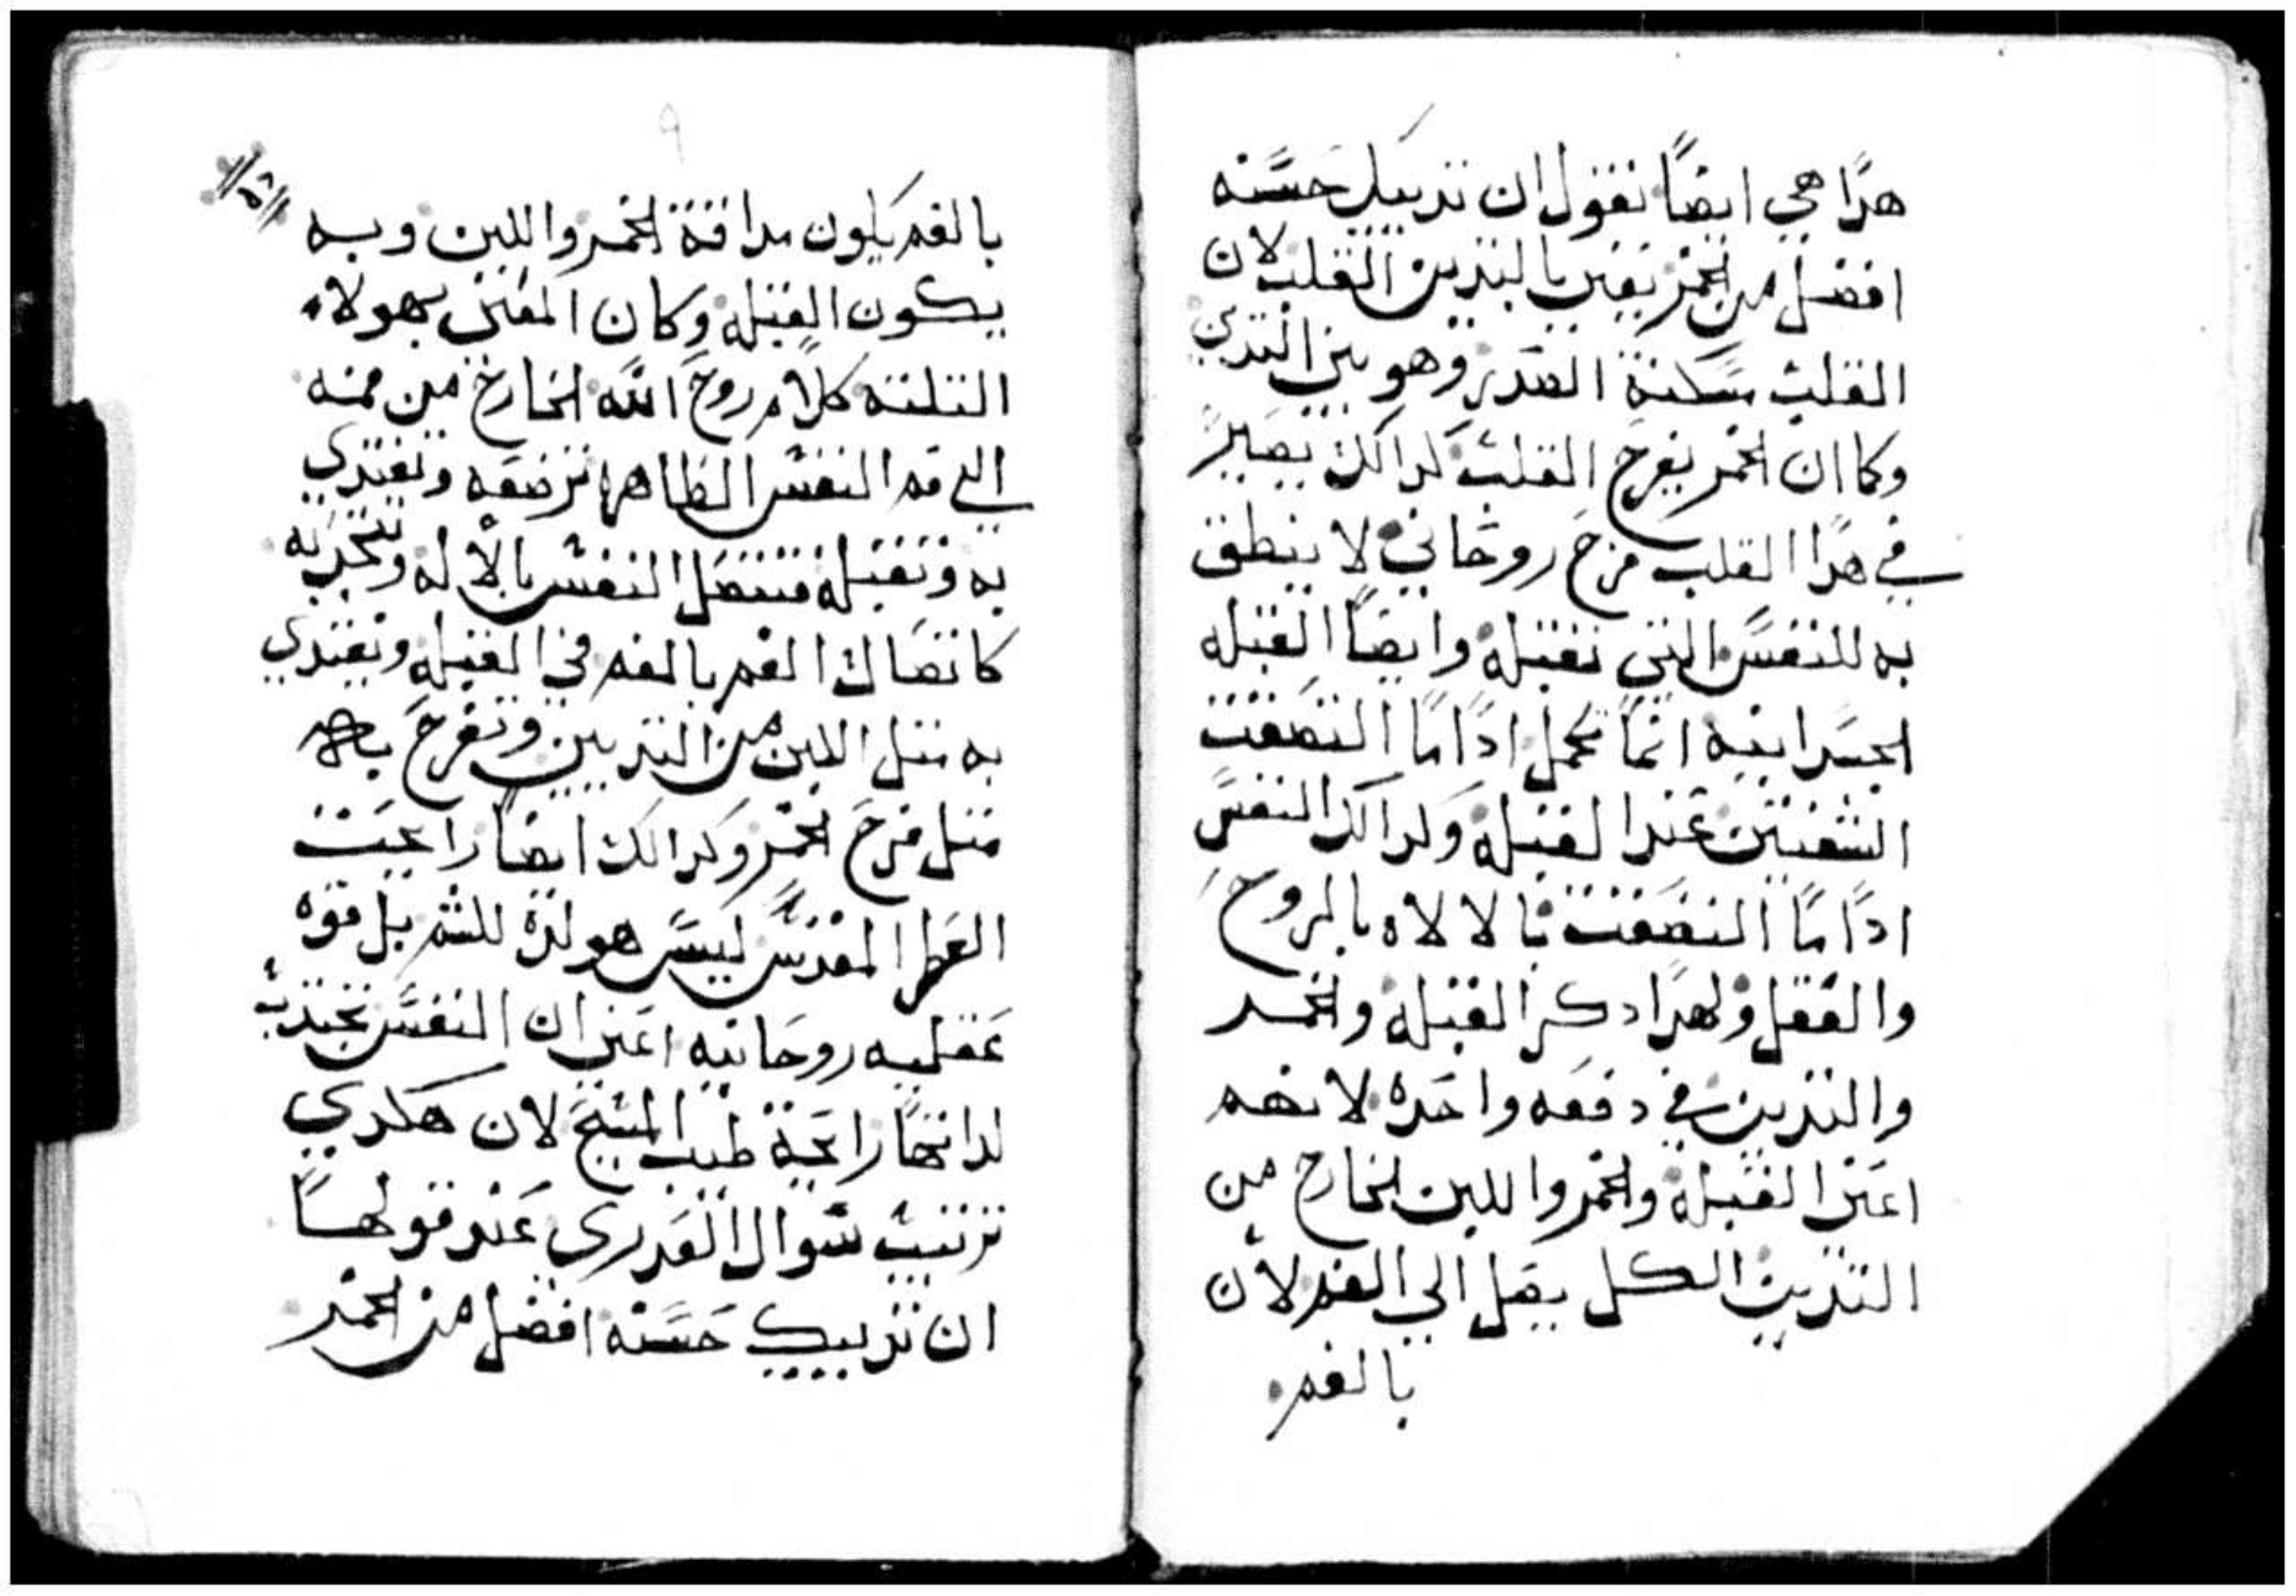 هدا هي ايضاً نقول ان تدييكِ حسنه
افضل من الخمر يعني بالتديين القلب لان
القلب مسكنة الصدر وهو بين التديين
وكما ان الخمر يفرح القلب كدالك يصير
في هدا القلب فرح روحاني لا ينطق
به للنفس التي تقبله وايضاً القبله
الجسدانيه انما تكمل اداما التصقت
الشفتين عند القبله وكدالك النفس
اداما التصقت بالالاه بالروح
والعقل ولهدا دكر القبله والخمر
والتديين في دفعه واحده لانهم
اعني القبله والخمر واللبن الخارج من
التديين الكل يصل الي الفم لان
بالفم
٩
بالفم يكون مداقة الخمر واللبن وبه
يكون القبله وكان المعني بهولاء
التلته كلام روح الله الخارج من فمه
الي فم النفس الطاهره ترضعه وتغتدي
به وتقبله فتتصل النفس بالاله وتتحد به
كاتصال الفم بالفم في القبله وتغتدي
به متل اللبن من التديين وتفرح به
متل فرح الخمر وكدالك ايضاً راعيت
العطر المقدس ليس هو لدة للشم بل قوه
عقليه روحانيه اعني ان النفس تجتدب
لداتها رائحة طيب المسيح لان هكدي
ترتيب سوال العدري عند قولها
ان تدييك حسنه افضل من الخمر